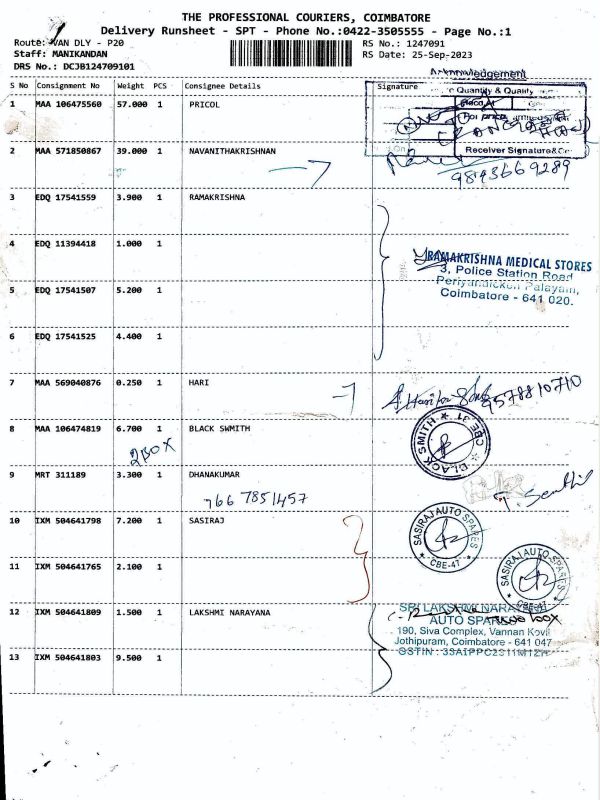 THE PROFESSIONAL COURIERS, COIMBATORE
Delivery Runsheet - SPT - Phone No.:0422-3505555 - Page No.:1
Route: VAN DLY - P20 RS No.: 1247091
Staff: MANIKANDAN RS Date: 25-Sep-2023
DRS No.: DCJB124709101
Acknowledgement
S No Consignment No Weight PCS Consignee Details Signature
Quantity & Quality
1 MAA 106475560 57.000 1 PRICOL
Receiver Signature&
2 MAA 571850867 39.000 1 NAVANITHAKRISHNAN
9843669289
3 EDQ 17541559 3.900 1 RAMAKRISHNA
4 EDQ 11394418 1.000 1
RAMAKRISHNA MEDICAL STORES
3, Police Station Road
Periyanaicken Palayam,
Coimbatore - 641 020.
5 EDQ 17541507 5.200 1
6 EDQ 17541525 4.400 1
7 MAA 569040876 0.250 1 HARI
9578810710
8 MAA 106474819 6.700 1 BLACK SWMITH
BLACK SMITH ★ CBE 31 ★
2BOX
9 MRT 311189 3.300 1 DHANAKUMAR
7667851457
T. Senthil
10 IXM 504641798 7.200 1 SASIRAJ
SASIRAJ AUTO SPARES
★ CBE-47 ★
11 IXM 504641765 2.100 1
SASIRAJ AUTO SPARES
★ CBE-47 ★
12 IXM 504641809 1.500 1 LAKSHMI NARAYANA
SRI LAKSHMI NARAYANA
AUTO SPARES
190, Siva Complex, Vannan Kovil
Jothipuram, Coimbatore - 641 047
13 IXM 504641803 9.500 1